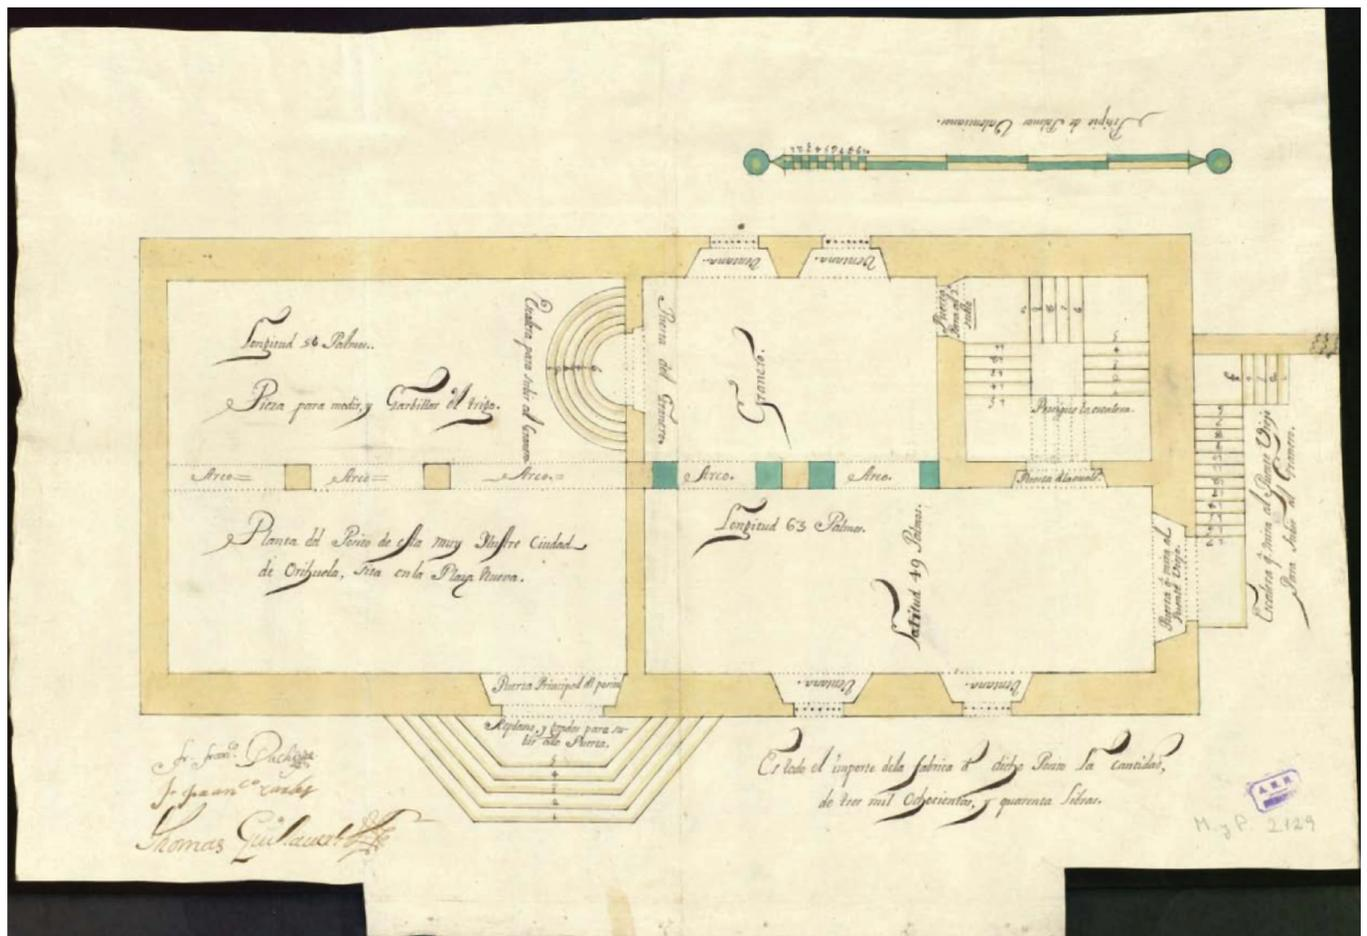 Pitipie de Palmos Valencianos.
Ventana.
Ventana.
Longitud 56 Palmos.
Pieza para medir, y Garbillar el trigo.
Escalera para subir al Granero.
Puerta del Granero.
Granero.
Puerta
Para
Prosigue la escalera.
Arco=
Arco=
Arco.=
Arco.
Arco.
Planta del Porito de esta muy Illustre Ciudad
de Orihuela, sita en la Plaza Nueva.
Longitud 63 Palmos.
Latitud 49 Palmos.
Puerta q̃ mira al
Puente Viejo.
Escalera q̃ mira al Puente Viejo
Para subir al Granero.
Puerta Principal del
Replano, y gradas para su-
bir a la Puerta.
Ventana.
Ventana.
Es todo el importe dela fabrica de dicho Porito la cantidad,
de tres mil Ochocientas, y quarenta Libras.
Thomas
A.H.N.
M. y P. 2129